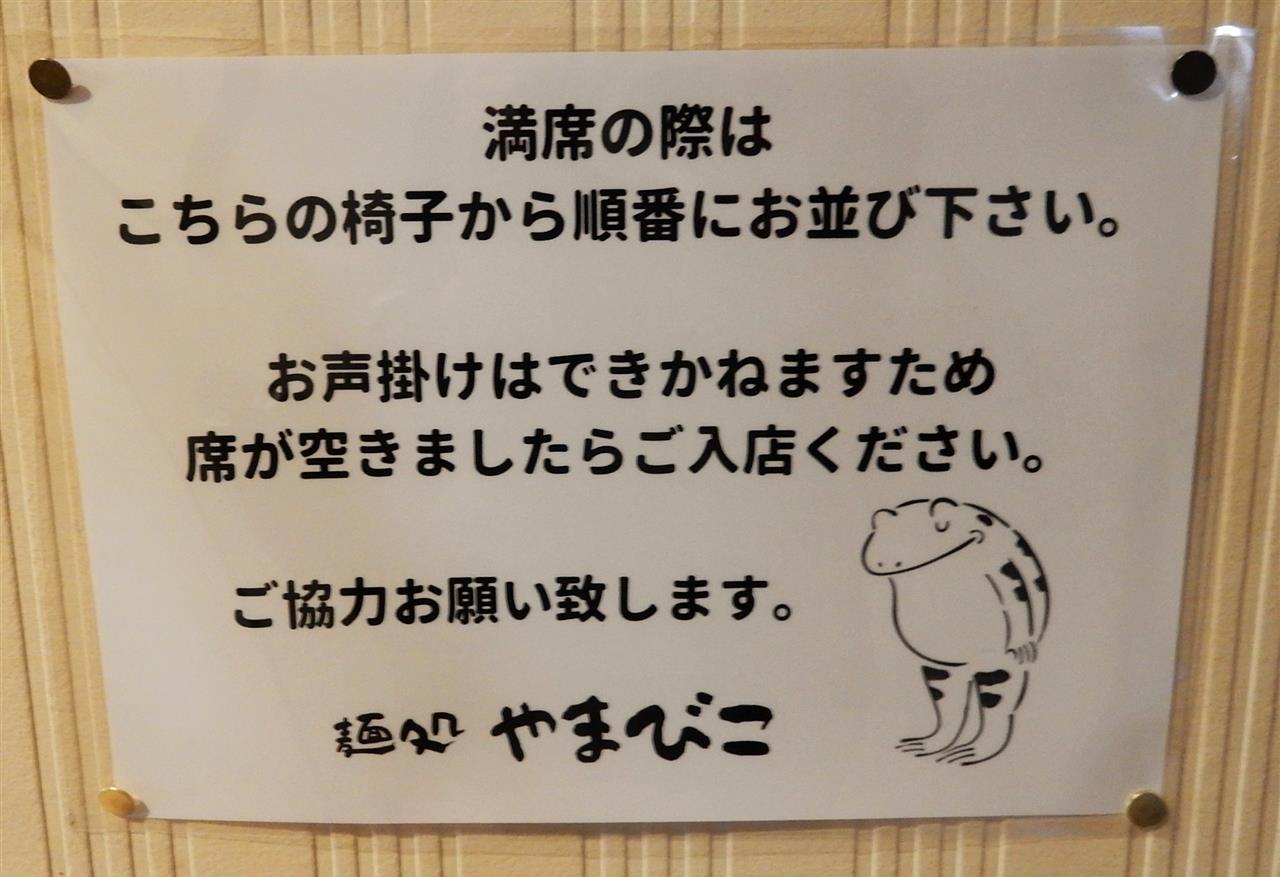 満席の際は
こちらの椅子から順番にお並び下さい。
お声掛けはできかねますため
席が空きましたらご入店ください。
ご協力お願い致します。
麺処 やまびこ